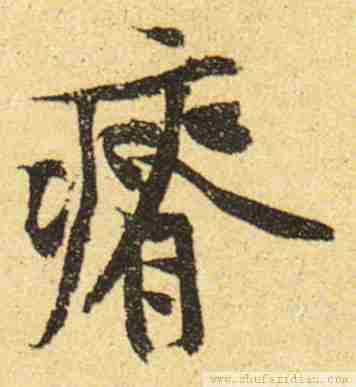 瘠
www.shufazidian.com